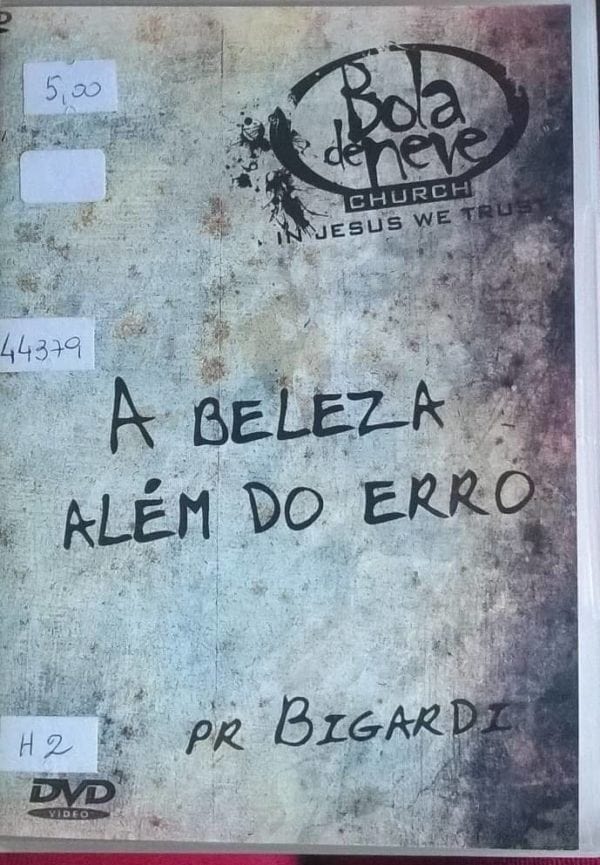 5,00
Bola
de neve
CHURCH
IN JESUS WE TRUST
44379
A BELEZA
ALÉM DO ERRO
PR BIGARDI
H2
DVD
VIDEO